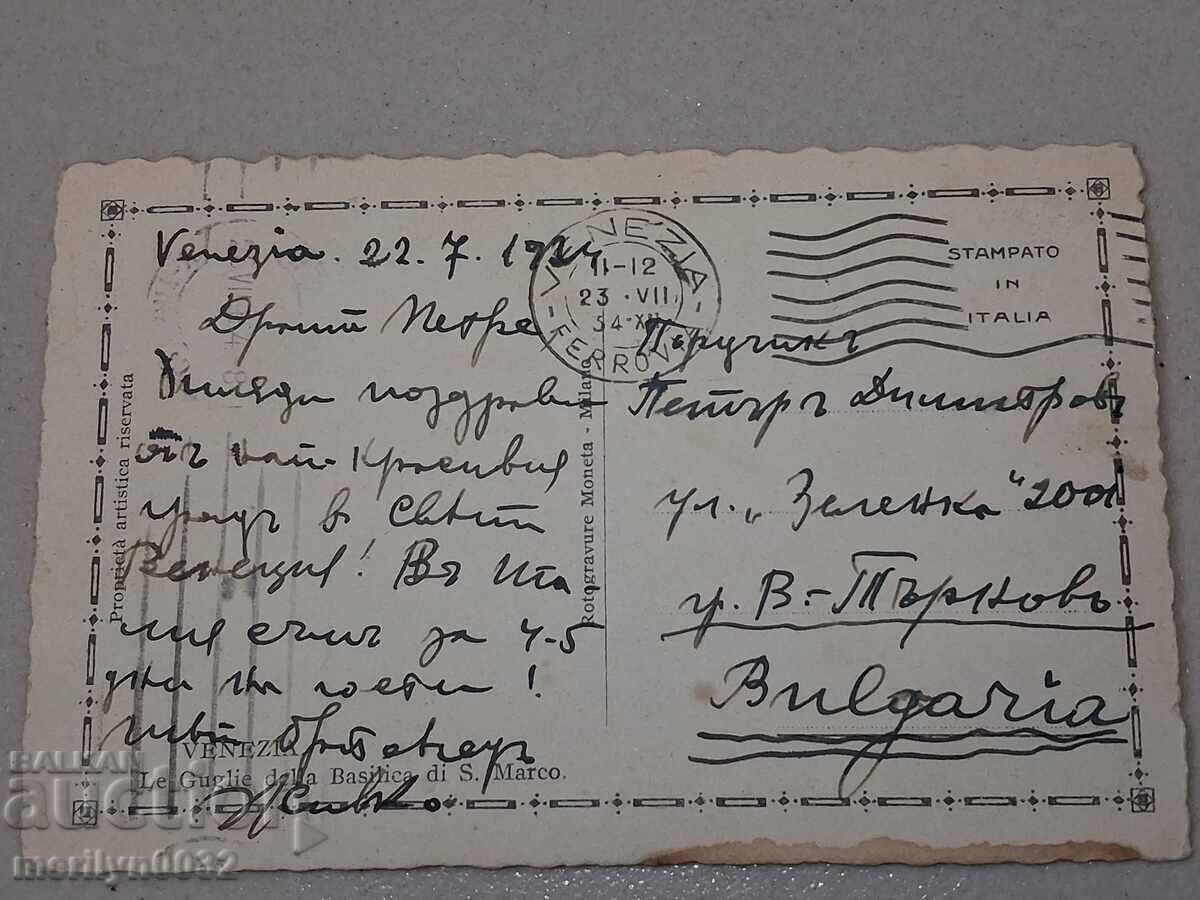 Venezia. 22. 7. 1934
Драги Петре
Хиляди поздрави
отъ най-красивия
градъ в светъ
Венеция! Въ Ита
лия съмъ за 4-5
дни на гости!
Твой братовчедъ
Живко
VENEZIA
Le Guglie della Basilica di S. Marco.
Proprietà artistica riservata
Rotogravure Moneta - Milano
VENEZIA
FERROVIA
11-12
23 · VII
34·XII
STAMPATO
IN
ITALIA
Поручикъ
Петъръ Димитровъ
ул. „Зеленка“ 200
гр. В.-Търново
Bulgaria
BALKAN
auction
merilyn0032